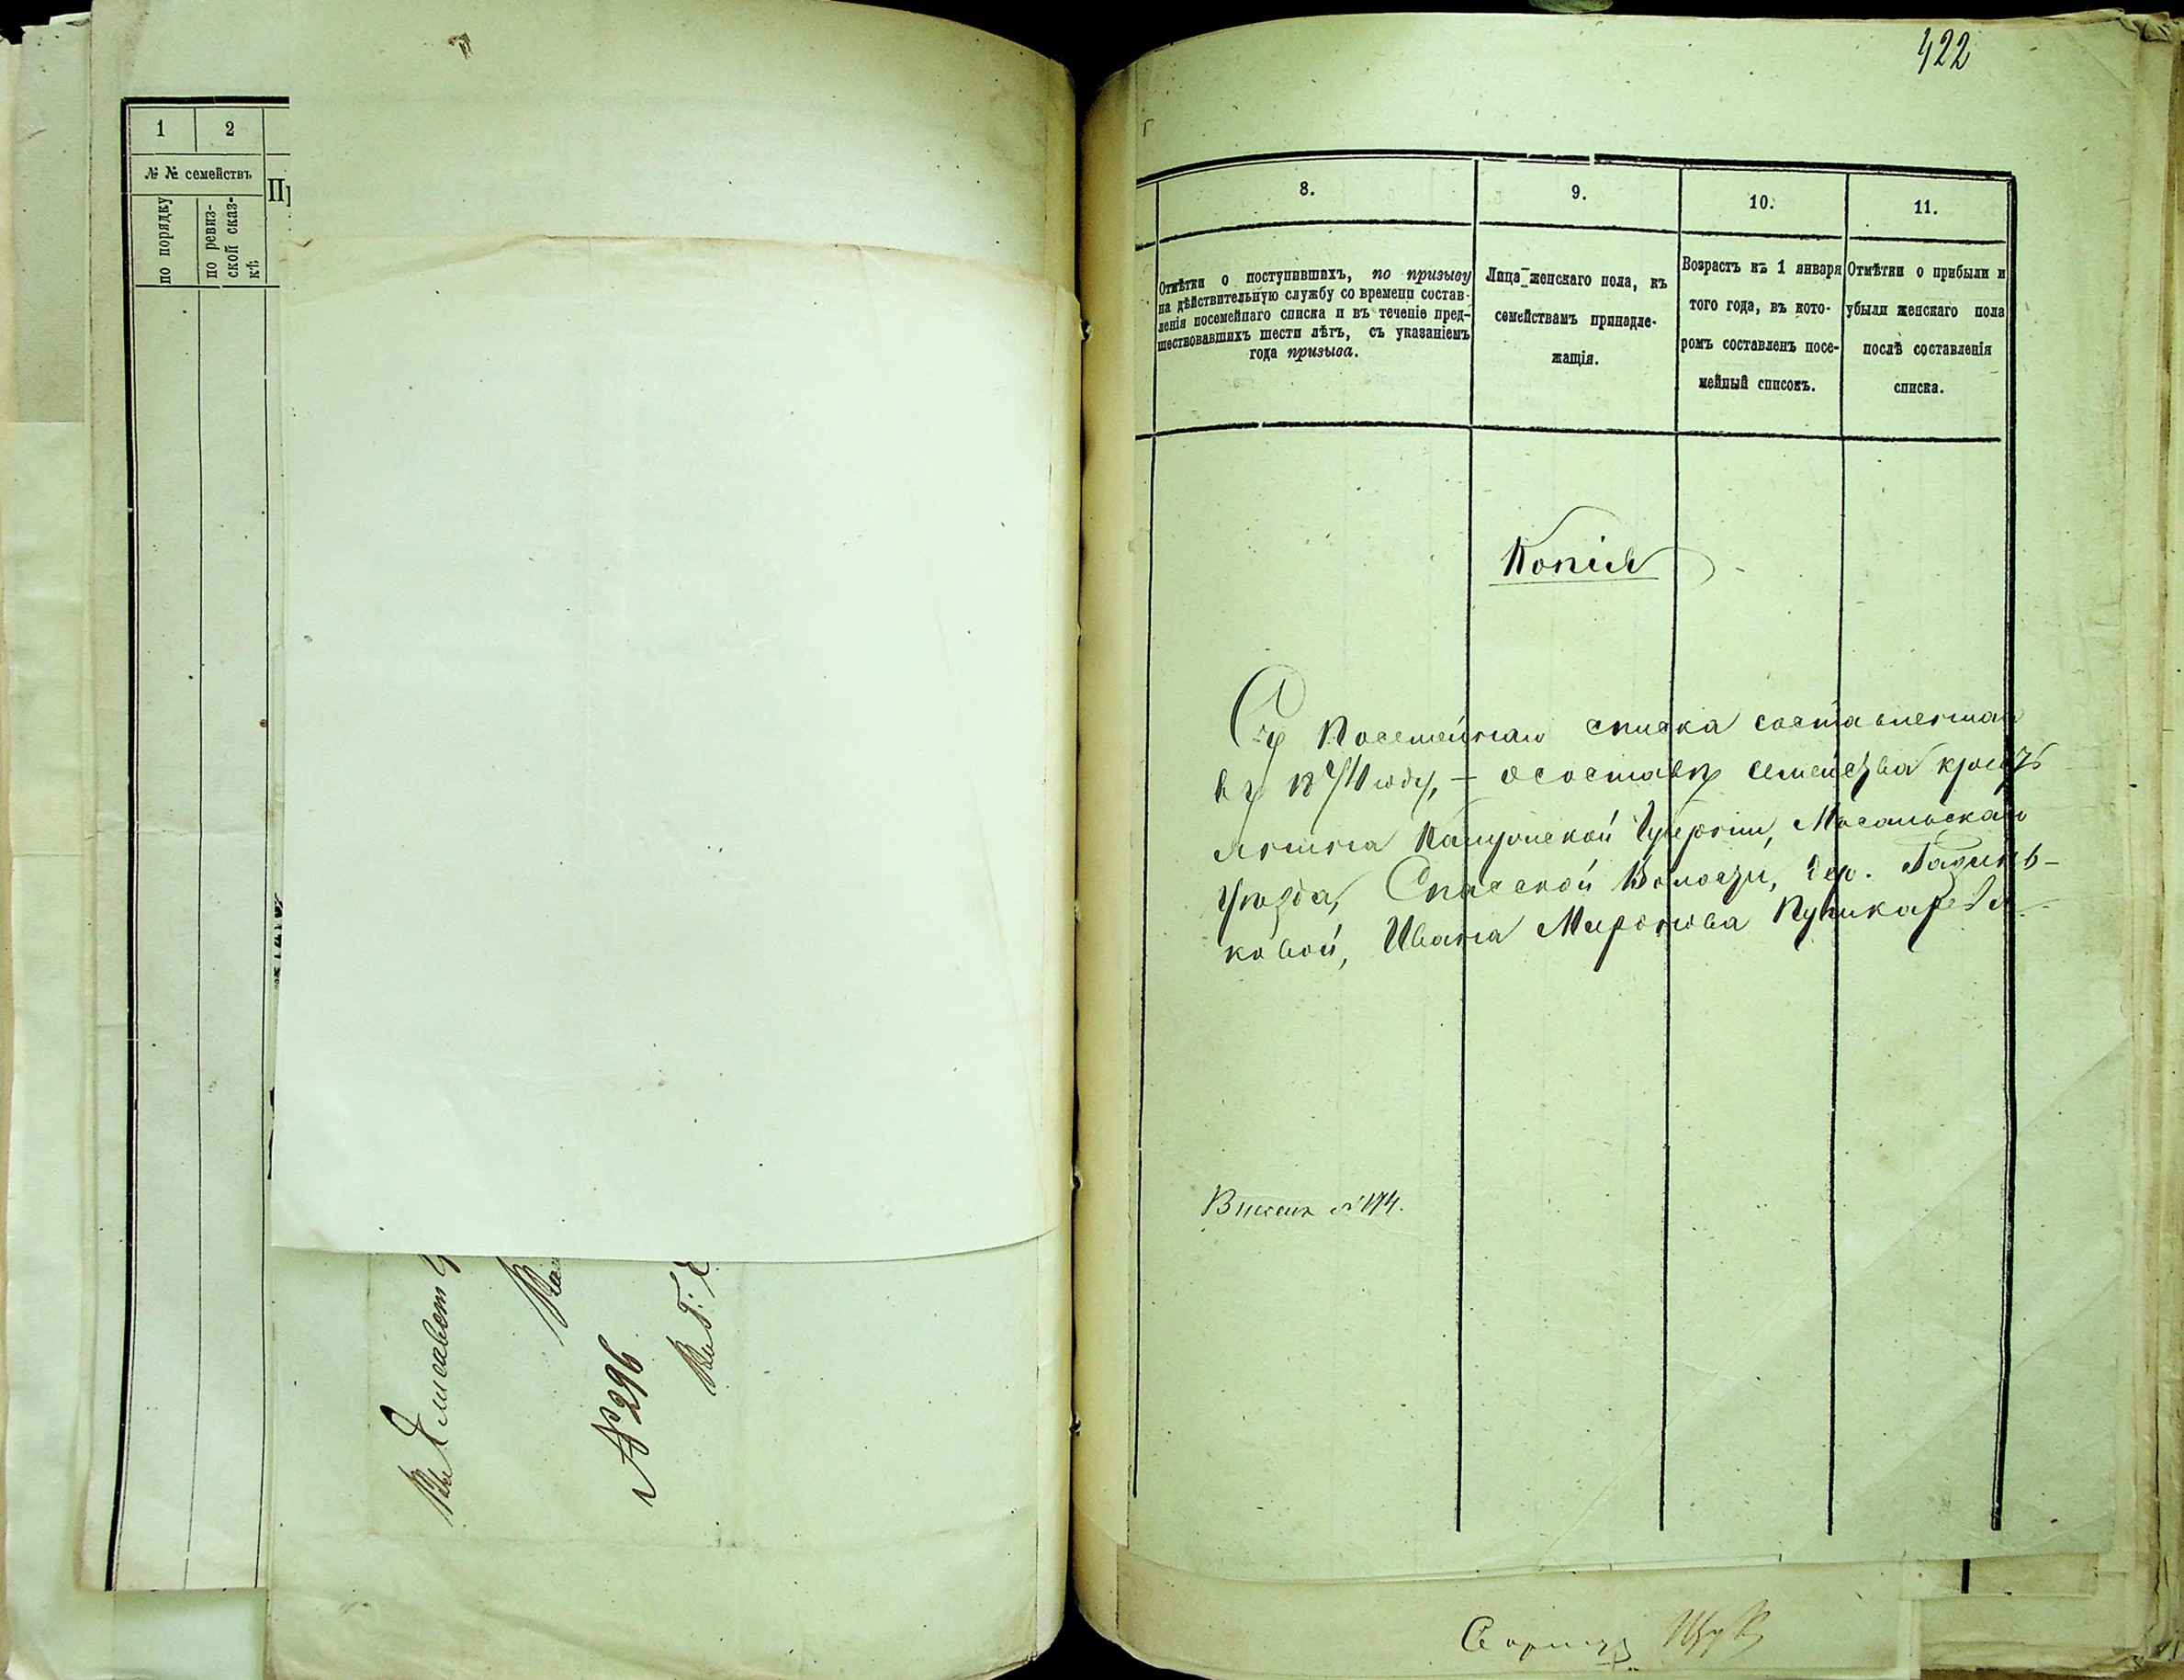 1
2
№ № семействъ
по порядку
по ревиз-
ской сказ-
кѣ
Въ Елисавет
№ 296
422
8.
9.
10.
11.
Отмѣтки о поступившихъ, по призыву
на дѣйствительную службу со времени состав-
ленія посемейнаго списка и въ теченіе пред-
шествовавшихъ шести лѣтъ, съ указаніемъ
года призыва.
Лица женскаго пола, къ
семействамъ принадле-
жащія.
Возрастъ къ 1 января
того года, въ кото-
ромъ составленъ посе-
мейный списокъ.
Отмѣтки о прибыли и
убыли женскаго пола
послѣ составленія
списка.
Копія
Съ Посемейнаго списка составленнаго
въ 1874 году, — о составѣ семейства кресть
янина Калужской Губерніи, Мосальскаго
Уѣзда, Спасской Волости, дер.
ковой, Ивана Миронова Пушкарева
№ 174.